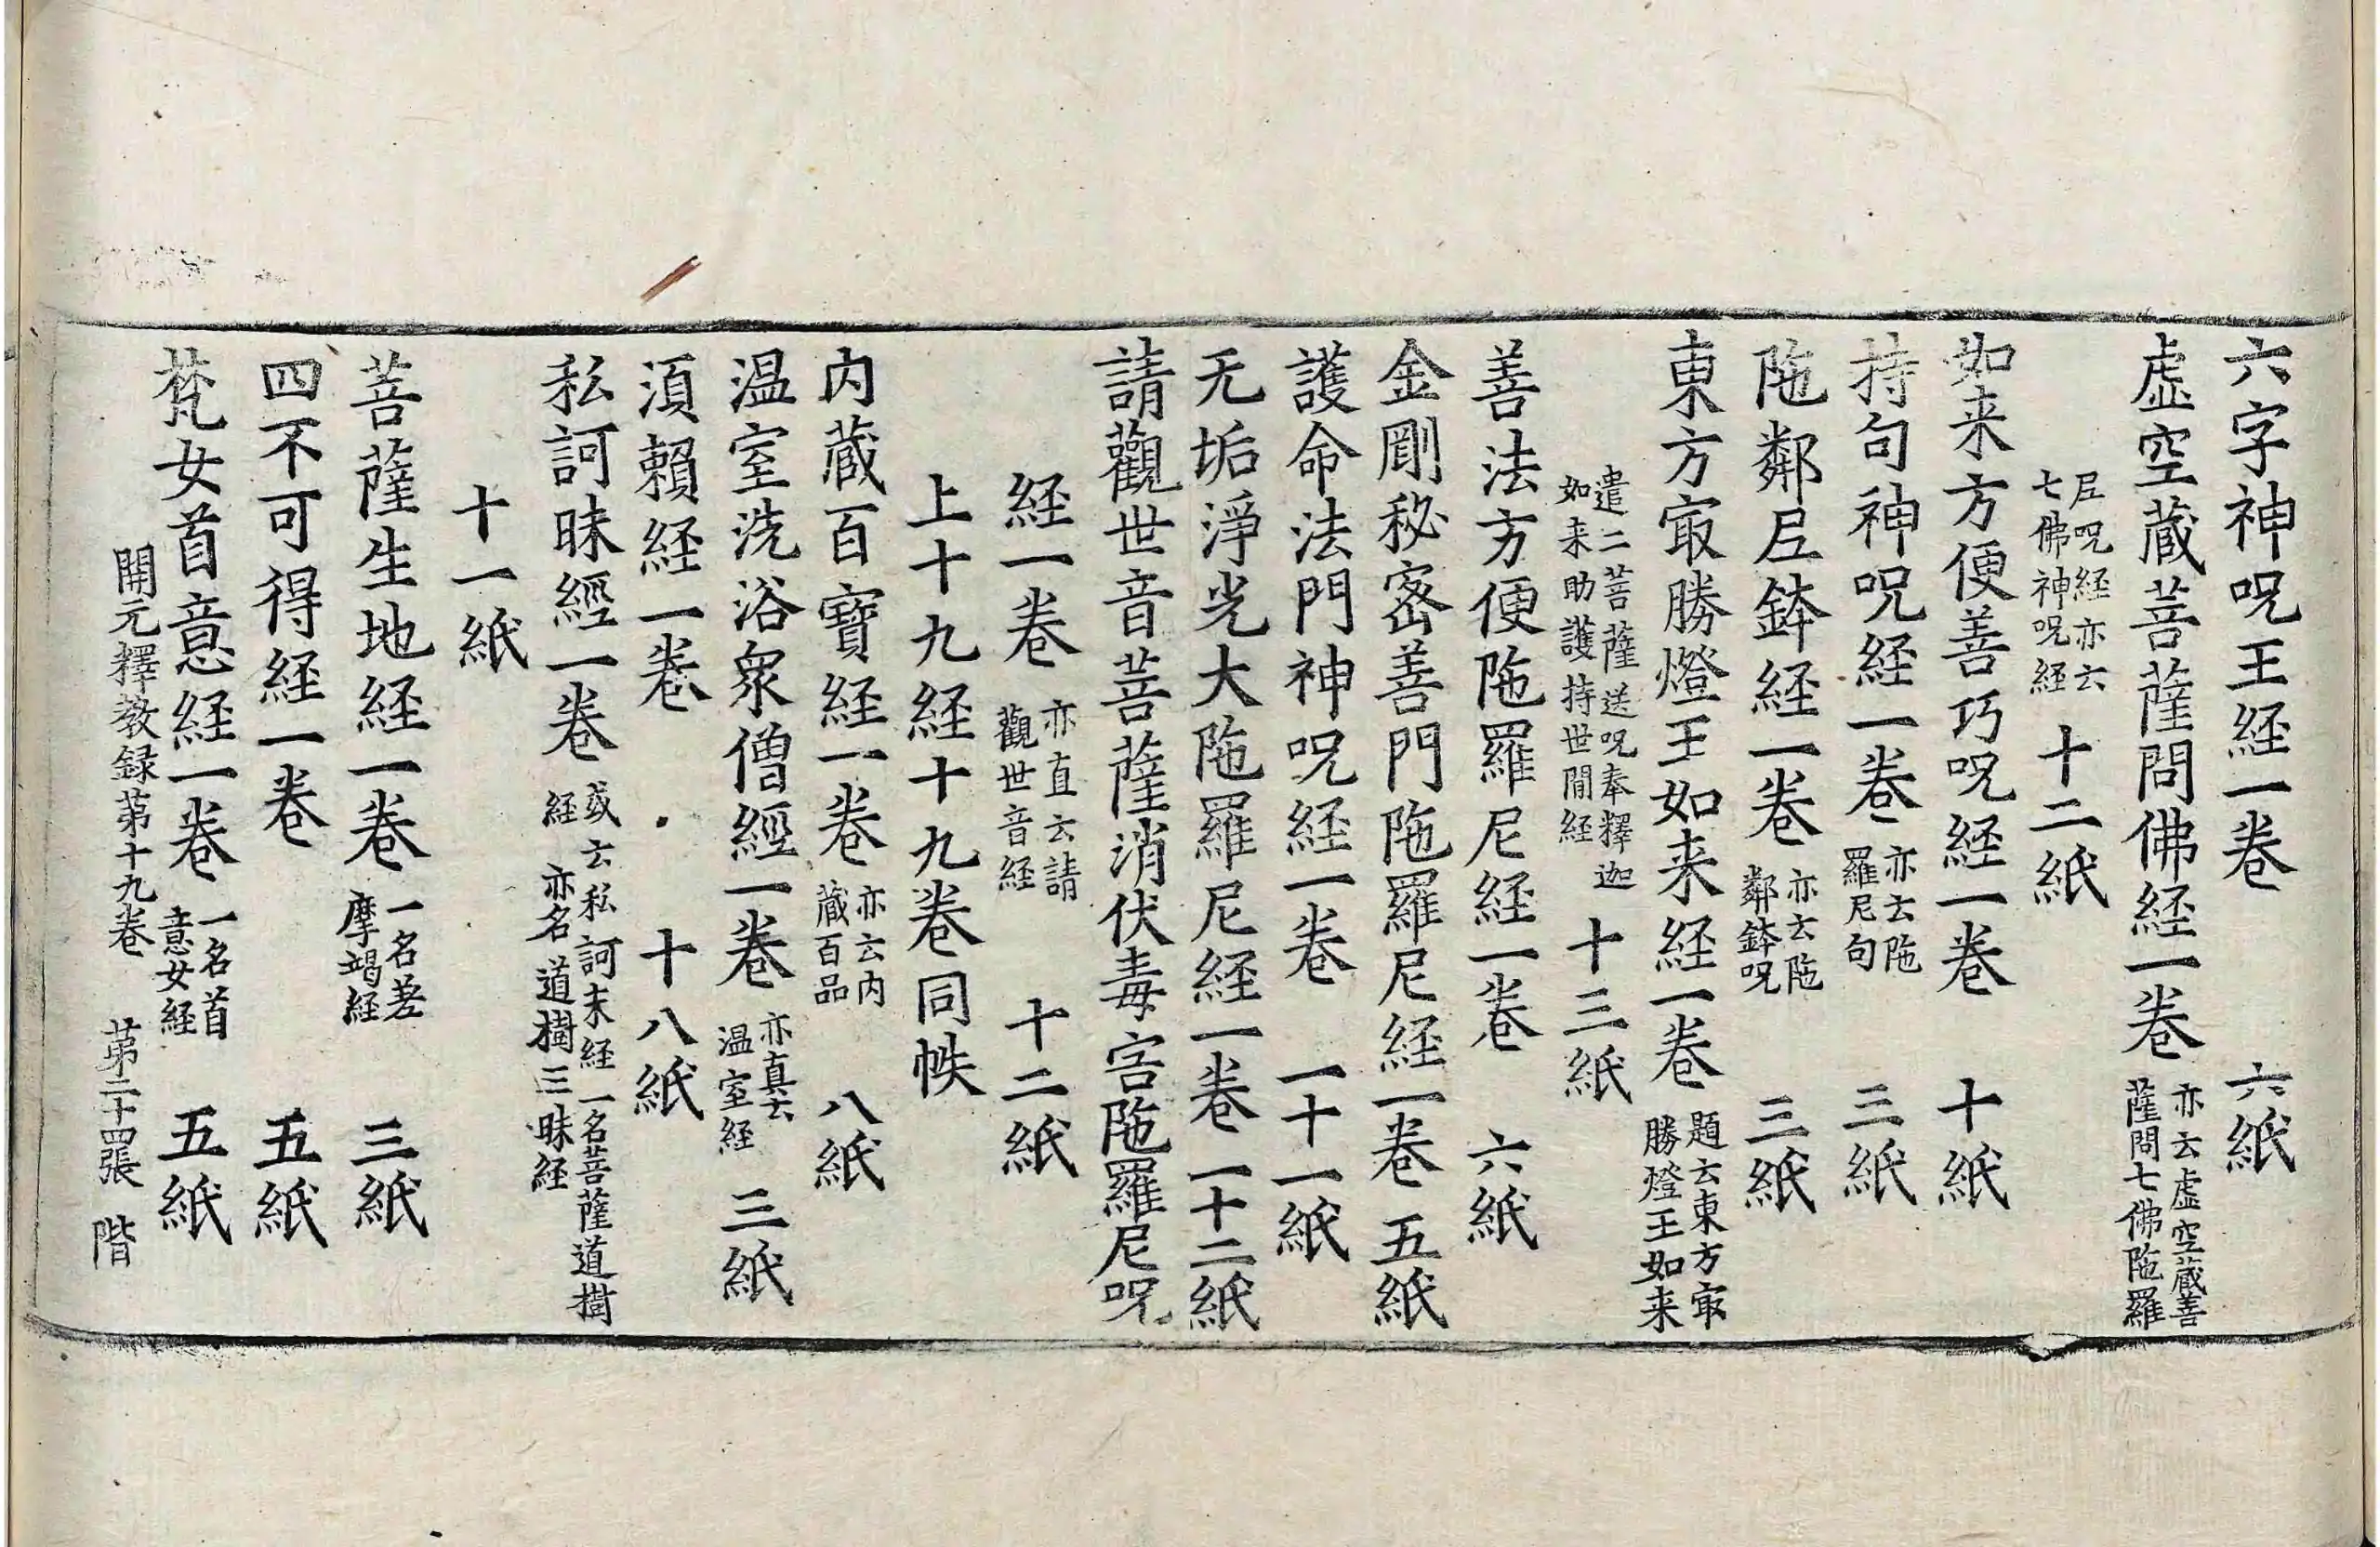 六字神呪王経一卷 六紙
虚空蔵菩薩問佛経一卷 亦云虚空蔵菩薩問七佛陁羅
尼呪経亦云七佛神呪経 十二紙
如来方便善巧呪経一卷 十紙
持句神呪経一卷 亦云陁羅尼句 三紙
陁鄰尼鉢経一卷 亦云陁鄰鉢呪 三紙
東方冣勝燈王如来経一卷 題云東方冣勝燈王如来
遣二菩薩送呪奉釋迦如来助護持世間経 十三紙
善法方便陁羅尼経一卷 六紙
金剛秘宻善門陁羅尼経一卷 五紙
護命法門神呪経一卷 一十一紙
无垢淨光大陁羅尼経一卷 一十二紙
請觀世音菩薩消伏毒害陁羅尼呪
経一卷 亦直云請觀世音経 十二紙
上十九経十九卷同帙
内蔵百寶経一卷 亦云内蔵百品 八紙
温室洗浴衆僧經一卷 亦直云温室経 三紙
須賴経一卷 十八紙
私訶昧經一卷 或云私訶末経一名菩薩道樹経亦名道樹三昧経
十一紙
菩薩生地経一卷 一名差摩竭経 三紙
四不可得経一卷 五紙
梵女首意経一卷 一名首意女経 五紙
開元釋教録苐十九卷 苐二十四張 階